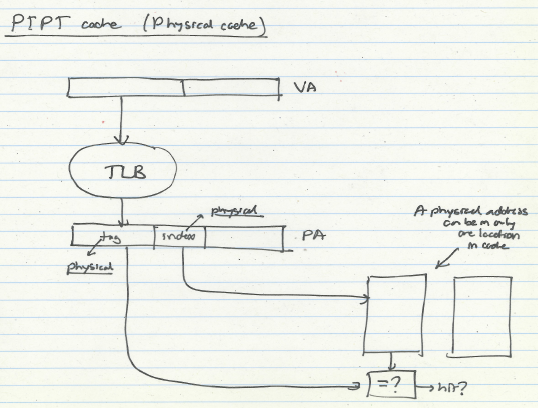 PIPT cache (Physical cache)
VA
TLB
physical
tag
index
PA
physical
A physical address
can be in only
one location
in cache
=?
hit?